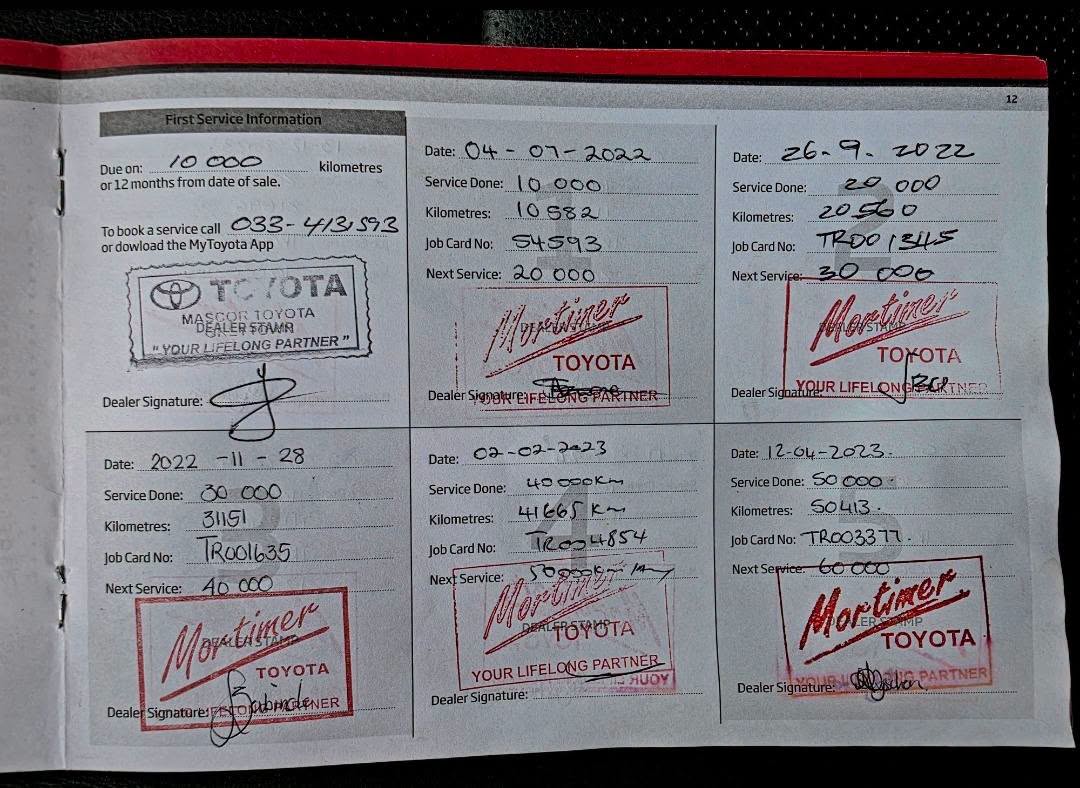 12
First Service Information
Due on: 10 000 kilometres
or 12 months from date of sale.
To book a service call 033-413,593
or dowload the MyToyota App
TOYOTA
MASCOR TOYOTA
DEALER STAMP
"YOUR LIFELONG PARTNER"
Dealer Signature:
1
Date: 04-07-2022
Service Done: 10 000
Kilometres: 10582
Job Card No: 54593
Next Service: 20 000
Mortimer
DEALER STAMP
TOYOTA
YOUR LIFELONG PARTNER
Dealer Signature:
2
Date: 26-9-2022
Service Done: 20 000
Kilometres: 20560
Job Card No: TR001345
Next Service: 30 000
Mortimer
DEALER STAMP
TOYOTA
YOUR LIFELONG PARTNER
Dealer Signature:
3
Date: 2022-11-28
Service Done: 30 000
Kilometres: 31151
Job Card No: TR001635
Next Service: 40 000
Mortimer
DEALER STAMP
TOYOTA
LIFELONG PARTNER
Dealer Signature:
4
Date: 02-02-2023
Service Done: 40000km
Kilometres: 41665 Km
Job Card No: TR004854
Next Service: 50000km
Mortimer
DEALER STAMP
TOYOTA
YOUR LIFELONG PARTNER
Dealer Signature:
5
Date: 12-04-2023.
Service Done: 50 000.
Kilometres: 50413.
Job Card No: TR003377.
Next Service: 60 000
Mortimer
DEALER STAMP
TOYOTA
YOUR LIFELONG PARTNER
Dealer Signature: